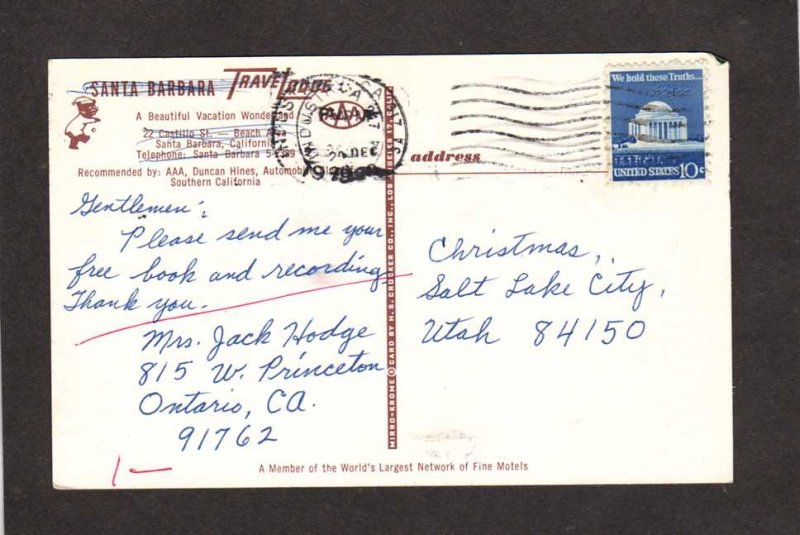 SANTA BARBARA TRAVELODGE
A Beautiful Vacation Wonderland
22 Castillo St. — Beach
Santa Barbara, California
Telephone: Santa Barbara
Recommended by: AAA, Duncan Hines,
Southern California
AAA
DEC
We hold these Truths...
UNITED STATES 10c
address
Gentlemen:
Please send me your
free book and recording.
Thank you.
Mrs. Jack Hodge
815 W. Princeton
Ontario, CA.
91762
Christmas,
Salt Lake City,
Utah 84150
MIRRO-KROME ® CARD BY H. S. CROCKER CO., INC., LOS ANGELES 17, CALIF.
A Member of the World's Largest Network of Fine Motels
1-